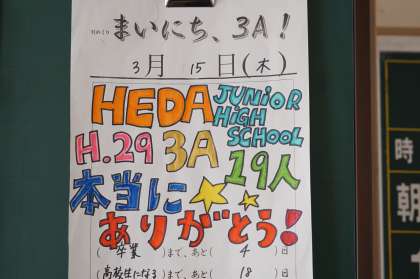 まいにち、3A!
3月 15日(木)
HEDA JUNIOR HIGH SCHOOL
H.29 3A 19人
本当に
ありがとう!
(卒業)まで、あと(4)日
(高校生になる)まで、あと(18)日
時
朝